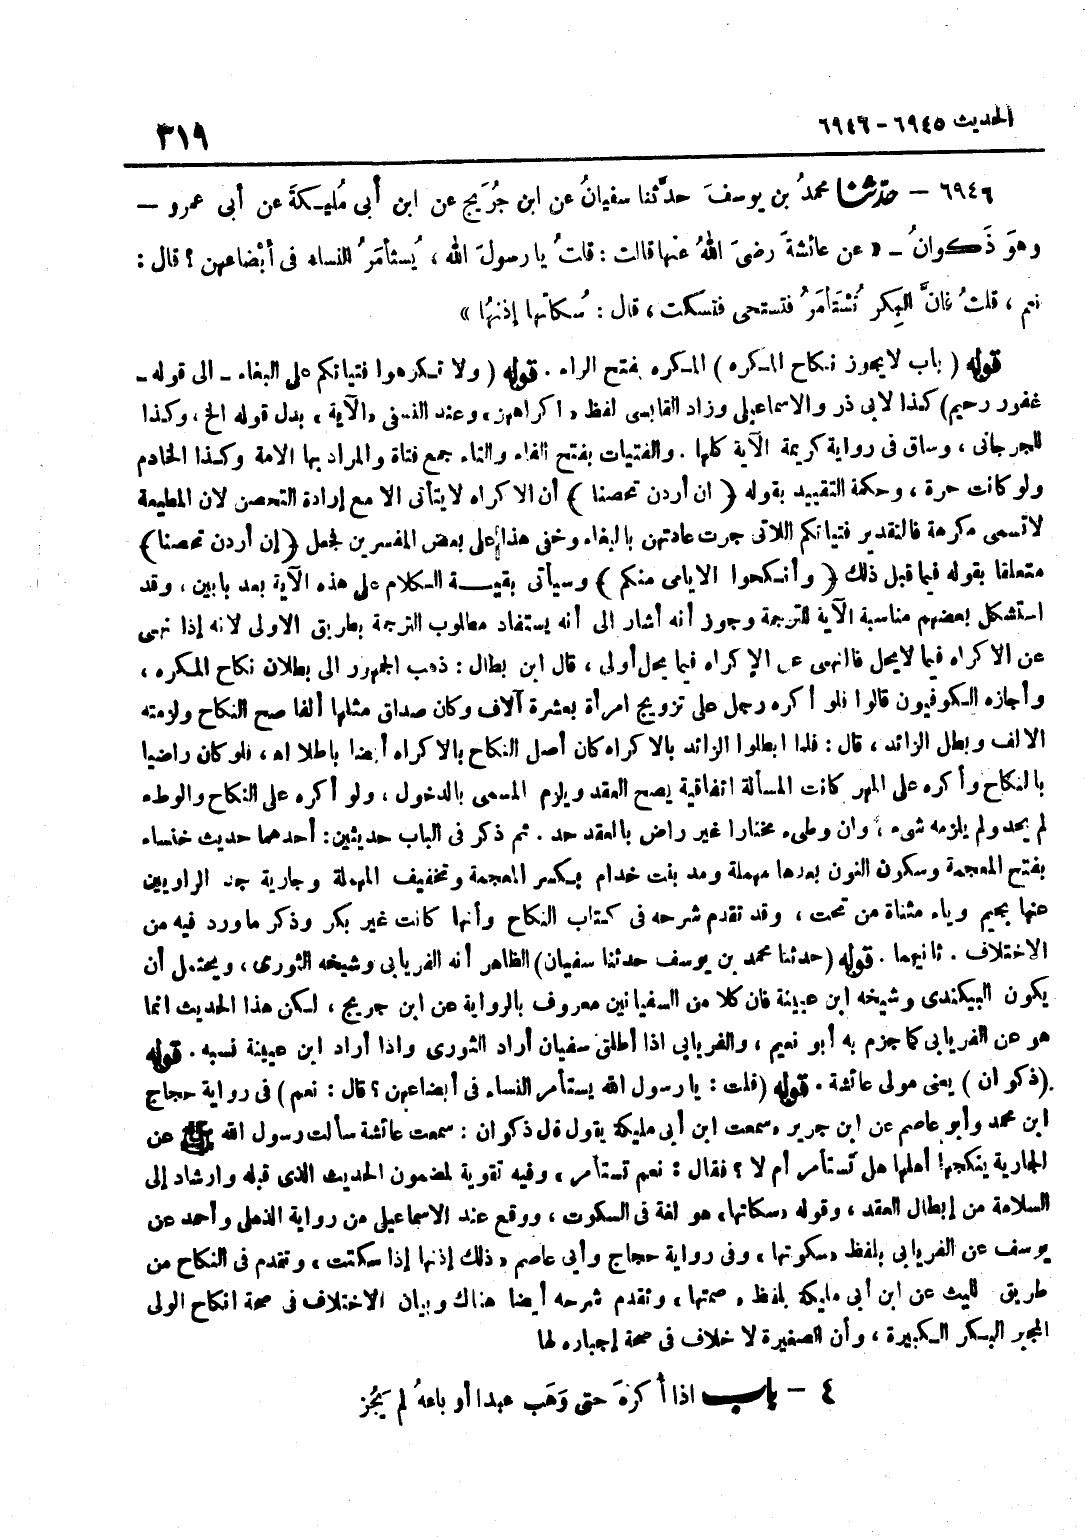 الحديث ٦٩٤٥ - ٦٩٤٦
٣١٩
٦٩٤٦ – حدّثنا محمدُ بن يوسفَ حدَّثنا سفيانُ عن ابن جُرَيج عن ابن أبى مُليكةَ عن أبى عمرو –
وهوَ ذَكوانُ – « عن عائشةَ رضىَ اللهُ عنها قالت : قلتُ يا رسولَ الله ، يُستأمَرُ النساء فى أبْضاعهن ؟ قال :
نعم ، قلتُ فانَّ البِكر تُسْتَأمَرُ فتستحى فتسكت ، قال : سُكاتها إذنُها »
قوله ( باب لا يجوز نكاح المكره ) المكره بفتح الراء . قوله ( ولا تكرهوا فتياتكم على البغاء – الى قوله –
غفور رحيم ) كذا لابى ذر والاسماعيلى وزاد القابسى لفظ « اكراههن » وعند النسفى « الآية » بدل قوله الخ ، وكذا
للجرجانى ، وساق فى رواية كريمة الآية كلها . والفتيات بفتح الفاء والتاء جمع فتاة والمراد بها الامة وكذا الخادم
ولو كانت حرة ، وحكمة التقييد بقوله ( ان أردن تحصنا ) أن الاكراه لا يتأتى الا مع إرادة التحصن لان المطيعة
لا تسمى مكرهة فالتقدير فتياتكم اللاتى جرت عادتهن بالبغاء وخفى هذا على بعض المفسرين فجعل ( إن أردن تحصنا )
متعلقا بقوله فيما قبل ذلك ( وأنكحوا الايامى منكم ) وسيأتى بقية الكلام على هذه الآية بعد بابين ، وقد
استشكل بعضهم مناسبة الآية للترجمة وجوز أنه أشار الى أنه يستفاد مطلوب الترجمة بطريق الاولى لانه إذا نهى
عن الاكراه فيما لا يحل فالنهى عن الإكراه فيما يحل أولى ، قال ابن بطال : ذهب الجمهور الى بطلان نكاح المكره ،
وأجازه الكوفيون قالوا فلو أكره رجل على تزويج امرأة بعشرة آلاف وكان صداق مثلها ألفا صح النكاح ولزمته
الالف وبطل الزائد ، قال : فلما ابطلوا الزائد بالاكراه كان أصل النكاح بالاكراه أيضا باطلا اه ، فلو كان راضيا
بالنكاح وأكره على المهر كانت المسألة اتفاقية يصح العقد ويلزم المسمى بالدخول ، ولو أكره على النكاح والوطء
لم يحد ولم يلزمه شىء ، وان وطىء مختارا غير راض بالعقد حد . ثم ذكر فى الباب حديثين : أحدهما حديث خنساء
بفتح المعجمة وسكون النون بعدها مهملة ومد بنت خدام بكسر المعجمة وتخفيف المهملة وجارية جد الراويين
عنها بجيم وياء مثناة من تحت ، وقد تقدم شرحه فى كتاب النكاح وأنها كانت غير بكر وذكر ما ورد فيه من
الاختلاف . ثانيهما . قوله ( حدثنا محمد بن يوسف حدثنا سفيان ) الظاهر أنه الفريابى وشيخه الثورى ، ويحتمل أن
يكون البيكندى وشيخه ابن عيينة فان كلا من السفيانين معروف بالرواية عن ابن جريج ، لكن هذا الحديث انما
هو عن الفريابى كما جزم به أبو نعيم ، والفريابى اذا أطلق سفيان أراد الثورى واذا أراد ابن عيينة نسبه . قوله
( ذكوان ) يعنى مولى عائشة . قوله ( قلت : يا رسول الله يستأمر النساء فى أبضاعهن ؟ قال : نعم ) فى رواية حجاج
ابن محمد وأبو عاصم عن ابن جرير « سمعت ابن أبى مليكة يقول قال ذكوان : سمعت عائشة سألت رسول الله ﷺ عن
الجارية ينكحها أهلها هل تستأمر أم لا ؟ فقال : نعم تستأمر ، وفيه تقوية لمضمون الحديث الذى قبله وارشاد إلى
السلامة من إبطال العقد ، وقوله « سكاتها » هو لغة فى السكوت ، ووقع عند الاسماعيلى من رواية الذهلى وأحمد عن
يوسف عن الفريابى بلفظ « سكوتها » وفى رواية حجاج وأبى عاصم « ذلك إذنها إذا سكتت ، وتقدم فى النكاح من
طريق الليث عن ابن أبى مليكة بلفظ « صمتها » وتقدم شرحه أيضا هناك وبيان الاختلاف فى صحة انكاح الولى
المجبر البكر الكبيرة ، وأن الصغيرة لا خلاف فى صحة إجباره لها
٤ – باب اذا أُكرهَ حتى وَهَب عبدا أو باعهُ لم يَجُز